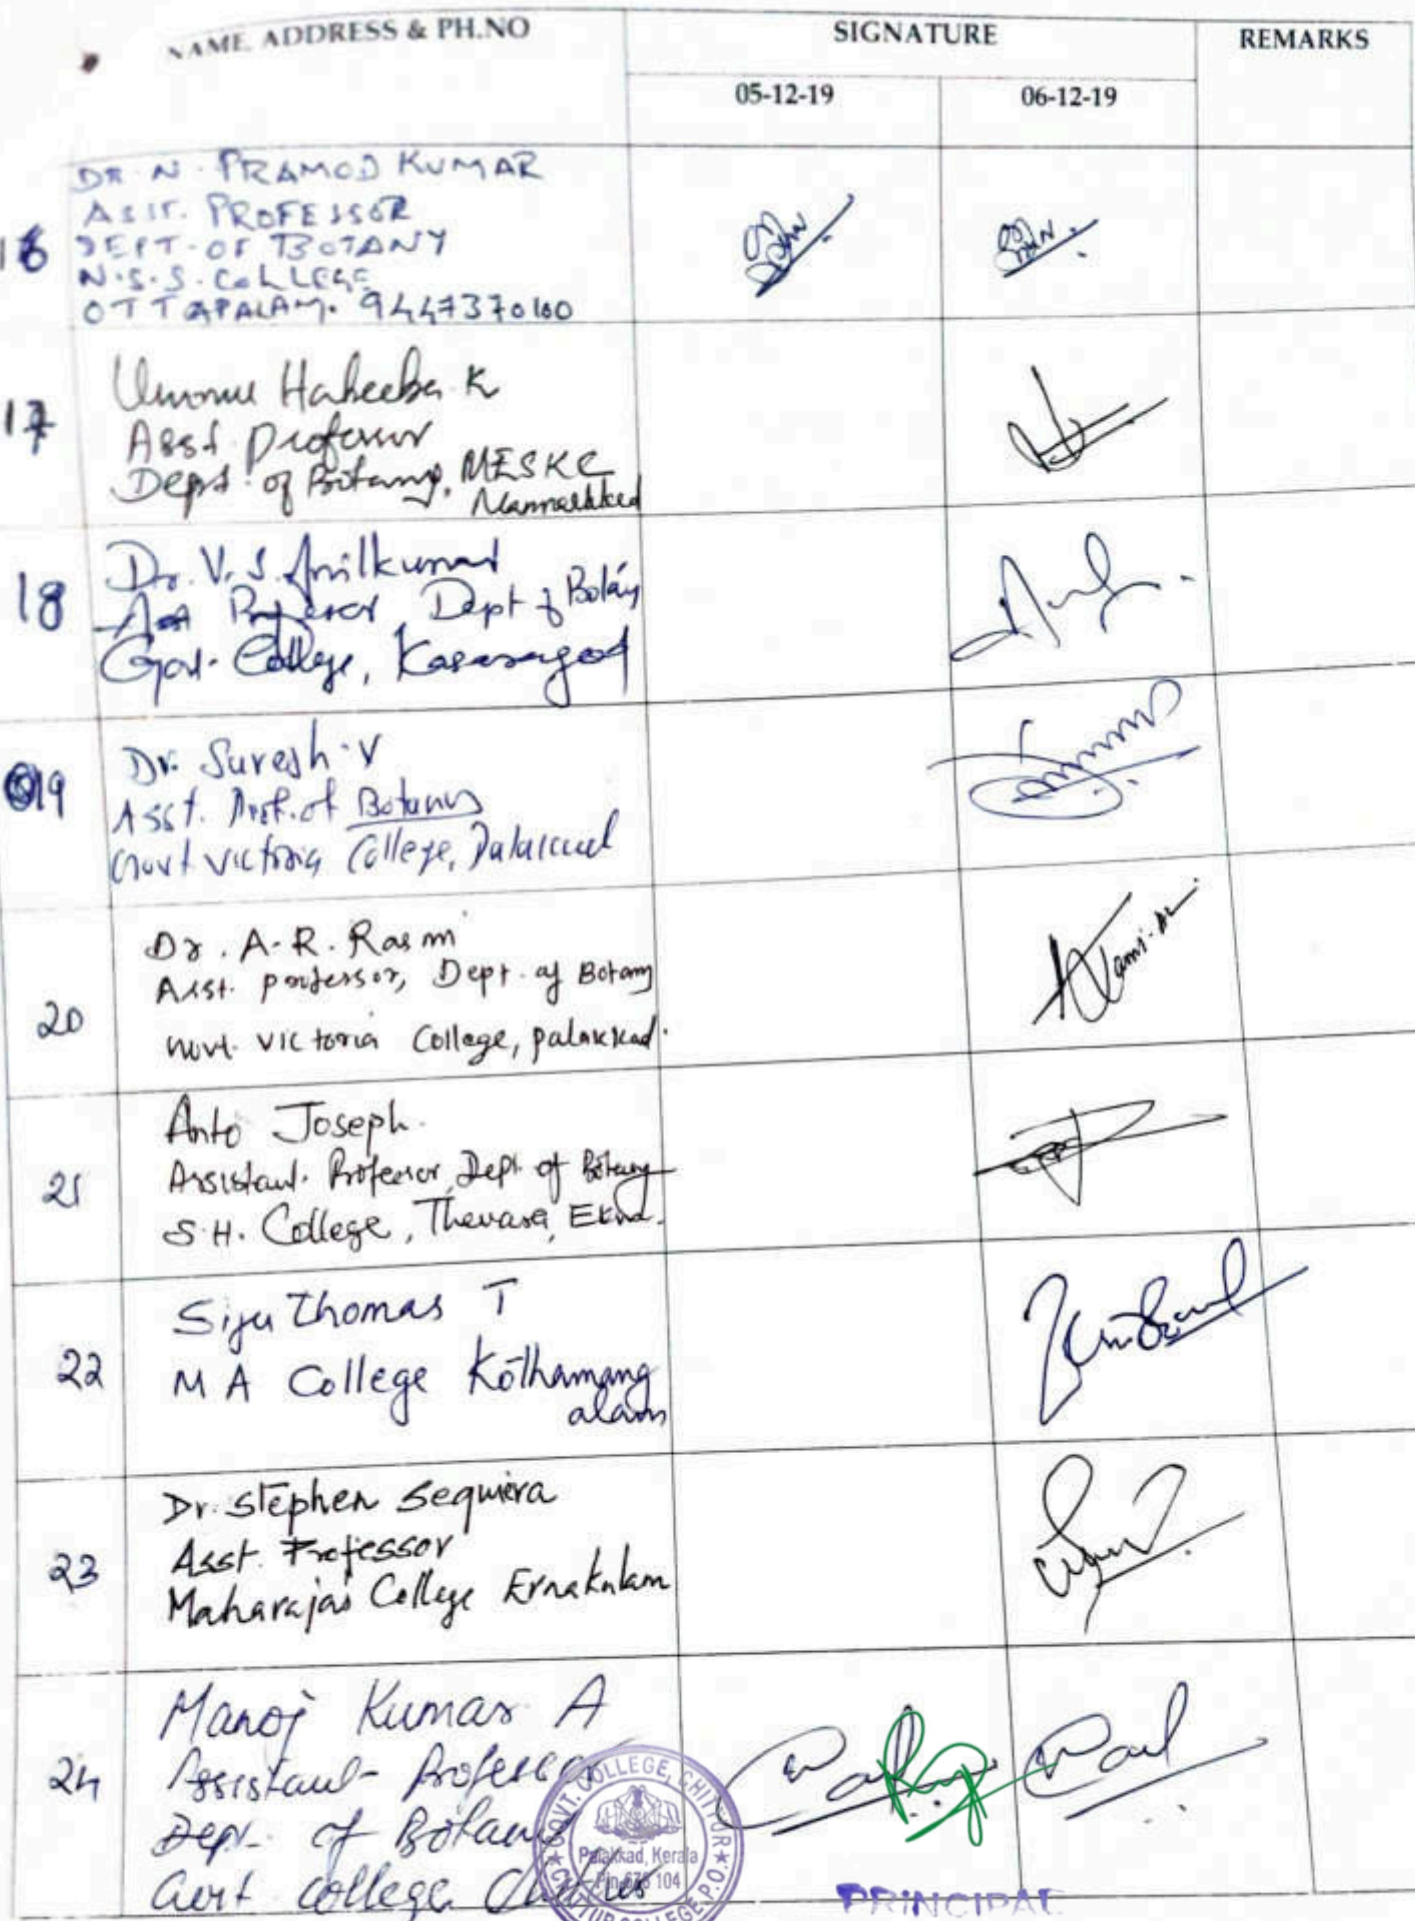 NAME, ADDRESS & PH.NO
SIGNATURE
REMARKS
05-12-19
06-12-19
16
DR. N. PRAMOD KUMAR
ASST. PROFESSOR
DEPT. OF BOTANY
N.S.S. COLLEGE
OTTAPALAM. 9447370100
17
Habeeba K
Asst Professor
Dept. of Botany, MESKC
Mannarkkad
18
Dr. V.S. Anilkumar
Asst Professor, Dept of Botany
Govt. College, Kasaragod
19
Dr. Suresh. V
Asst. Prof. of Botany
Govt Victoria College, Palakkad
20
Dr. A.R. Rasmi
Asst. professor, Dept. of Botany
Govt. Victoria College, palakkad.
21
Anto Joseph.
Assistant. Professor, Dept. of Botany
S.H. College, Thevara, Ekm.
22
Siju Thomas T
M A College Kothamang
alam
23
Dr. Stephen Sequiera
Asst. Professor
Maharajas College Ernakulam
24
Manoj Kumar A
Assistant Professor
Dept. of Botany
Govt College Chittur
GOVT. COLLEGE, CHITTUR
Palakkad, Kerala
Pin-678 104
CHITTUR COLLEGE P.O.
PRINCIPAL